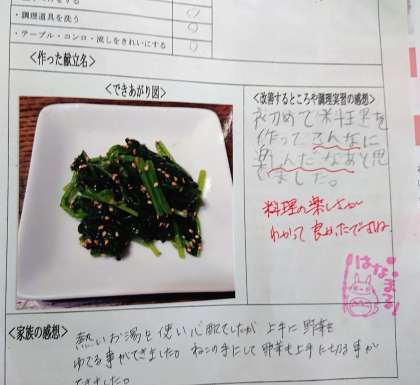 ・調理道具を洗う
・テーブル・コンロ・流しをきれいにする
<作った献立名>
<できあがり図>
<改善するところや調理実習の感想>
初めて料理を
作って こんなに
楽しんだなあと思
いました。
料理の楽しさが
わかって良かったですね。
はなまる!
<家族の感想>
熱いお湯を使い心配でしたが 上手に野菜を
ゆでる事ができました。ねこの手にして野菜も上手に切る事が
できました。